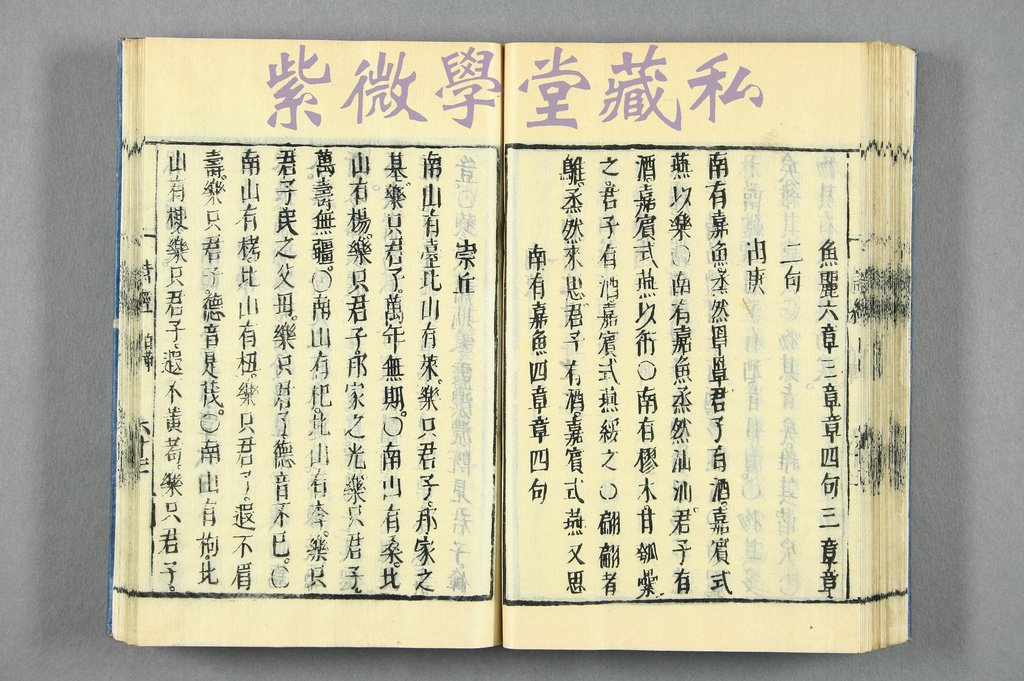 紫微學堂藏私
魚麗六章三章章四句三章章
二句
由庚
南有嘉魚烝然罩罩君子有酒嘉賓式
燕以樂〇南有嘉魚烝然汕汕君子有
酒嘉賓式燕以衎〇南有樛木甘瓠纍
之君子有酒嘉賓式燕綏之〇翩翩者
鵻烝然來思君子有酒嘉賓式燕又思
南有嘉魚四章章四句
崇丘
南山有臺北山有萊樂只君子邦家之
基樂只君子萬年無期〇南山有桑北
山有楊樂只君子邦家之光樂只君子
萬壽無疆〇南山有杞北山有李樂只
君子民之父母樂只君子德音不已〇
南山有栲北山有杻樂只君子遐不眉
壽樂只君子德音是茂〇南山有枸北
山有楰樂只君子遐不黃耇樂只君子
詩經
六十三